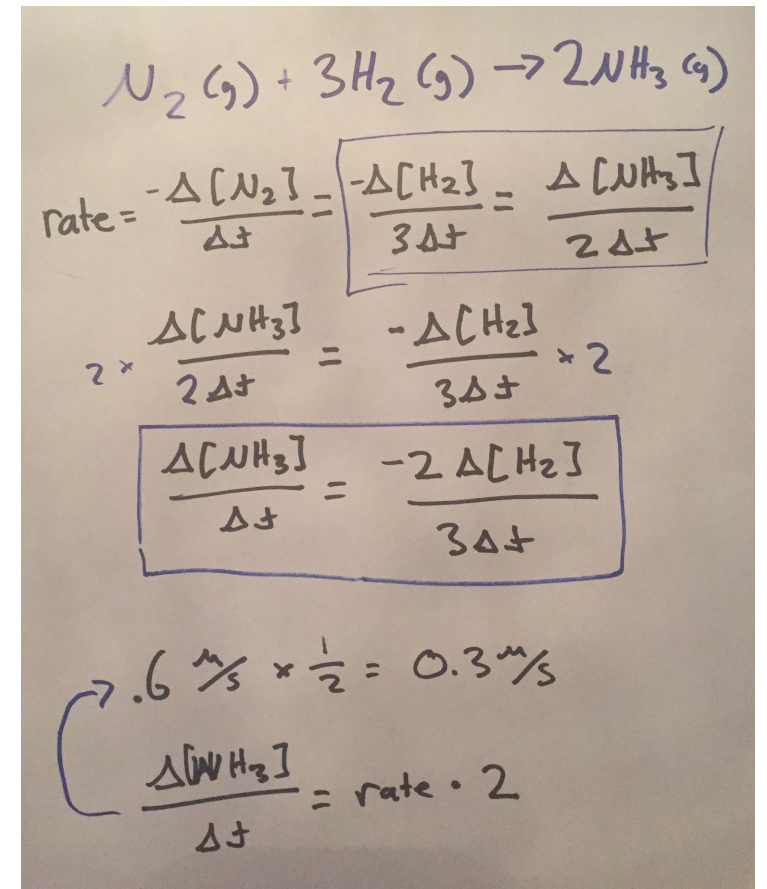 N₂ (g) + 3H₂ (g) → 2NH₃ (g)
rate = -Δ[N₂]/Δt = -Δ[H₂]/3Δt = Δ[NH₃]/2Δt
2 × Δ[NH₃]/2Δt = -Δ[H₂]/3Δt × 2
Δ[NH₃]/Δt = -2 Δ[H₂]/3Δt
.6 M/s × 1/2 = 0.3 M/s
Δ[NH₃]/Δt = rate · 2